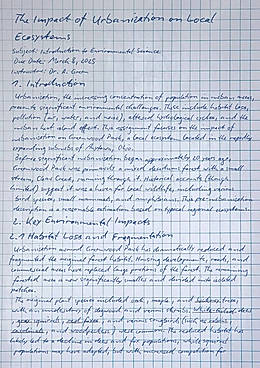 The Impact of Urbanization on Local
Ecosystems
Subject: Introduction to Environmental Science
Due Date: March 8, 2025
Instructor: Dr. A. Green
1. Introduction
Urbanization, the increasing concentration of population in urban areas,
presents significant environmental challenges. These include habitat loss,
pollution (air, water, and noise), altered hydrological cycles, and the
urban heat island effect. This assignment focuses on the impact of
urbanization on Greenwood Park, a local ecosystem located in the rapidly
expanding suburbs of Anytown, Ohio.
Before significant urbanization began approximately 20 years ago,
Greenwood Park was primarily a mixed deciduous forest with a small
stream, Clear Creek, running through it. Historical accounts (though
limited) suggest it was a haven for local wildlife, including various
bird species, small mammals, and amphibians. This pre-urbanization
description is a reasonable estimation based on typical regional ecosystems.
2. Key Environmental Impacts
2.1 Habitat Loss and Fragmentation
Urbanization around Greenwood Park has dramatically reduced and
fragmented the original forest habitat. Housing developments, roads, and
commercial areas have replaced large portions of the forest. The remaining
forested area is now significantly smaller and divided into isolated
patches.
The original plant species included oak, maple, and
with an understory of dogwood and various shrubs. White-tailed deer
gray squirrels, red foxes, and various songbirds (such as
cardinals, and woodpeckers) were common. The reduced habitat has
likely led to a decline in deer and fox populations, while squirrel
populations may have adapted, but with increased competition for